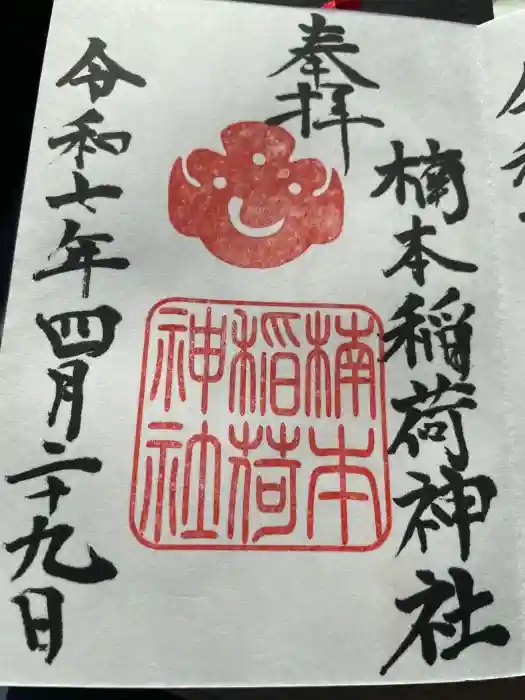 奉拝
楠本稲荷神社
楠本
稲荷
神社
令和七年四月二十九日